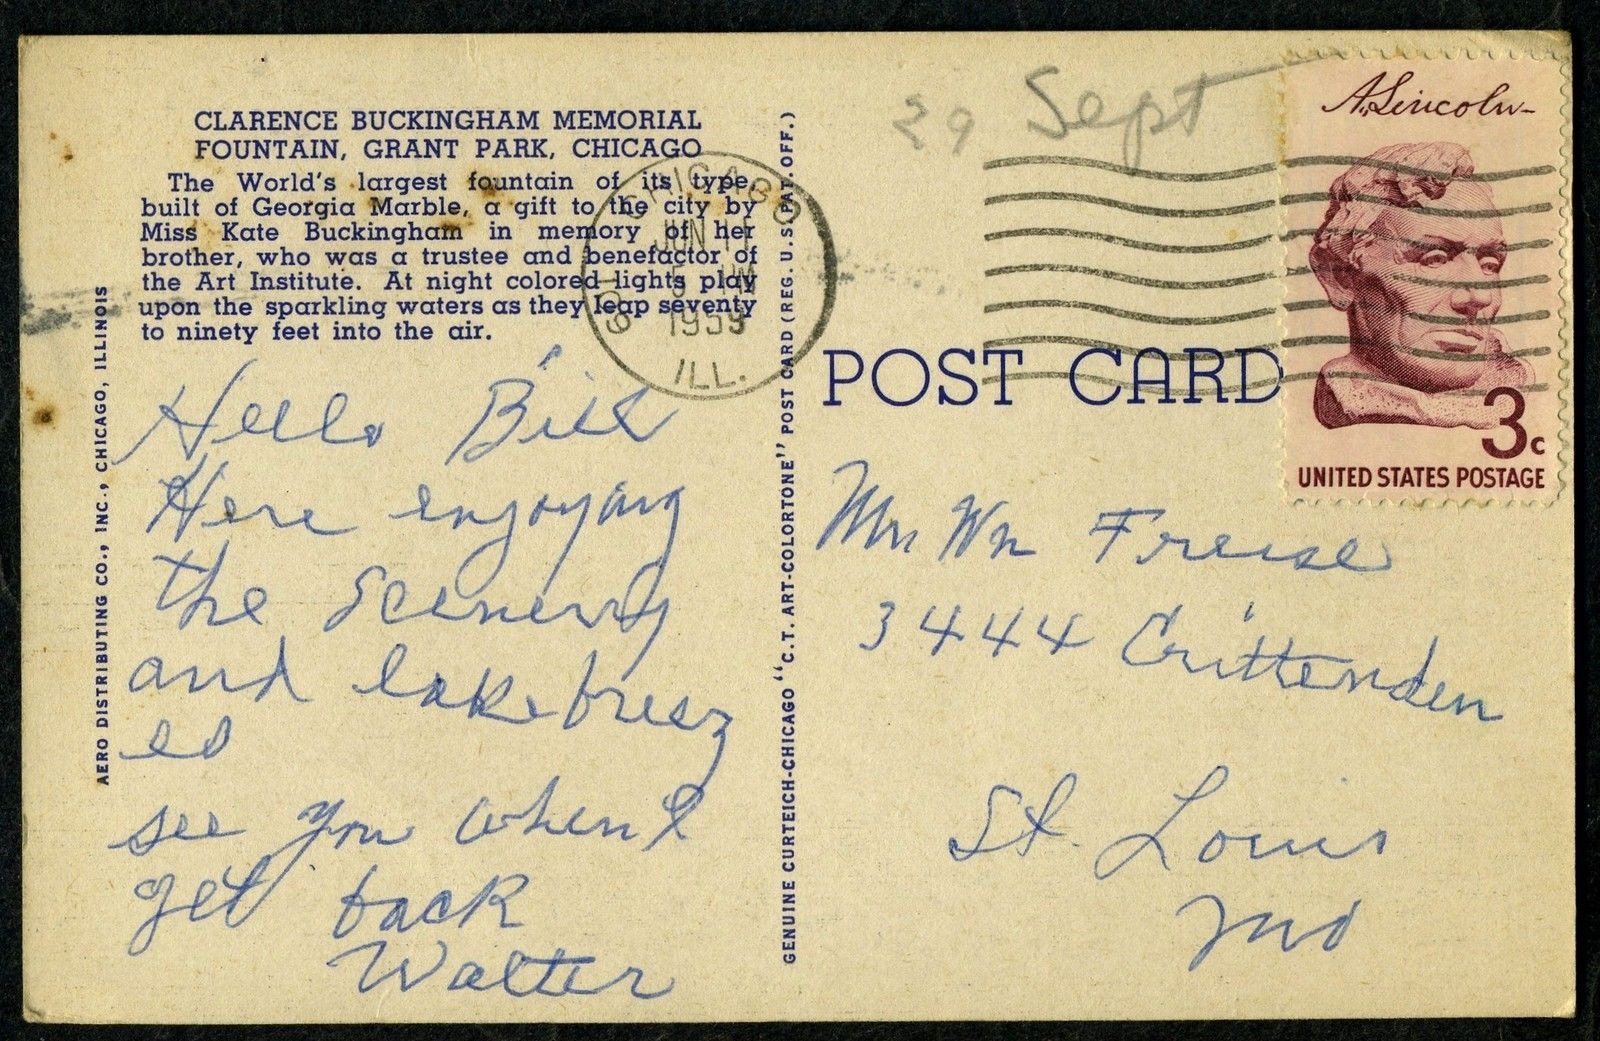 CLARENCE BUCKINGHAM MEMORIAL
FOUNTAIN, GRANT PARK, CHICAGO
The World's largest fountain of its type,
built of Georgia Marble, a gift to the city by
Miss Kate Buckingham in memory of her
brother, who was a trustee and benefactor of
the Art Institute. At night colored lights play
upon the sparkling waters as they leap seventy
to ninety feet into the air.
AERO DISTRIBUTING CO., INC., CHICAGO, ILLINOIS
Hello Bill
Here enjoying
the Scenerry
and lake breez
es
see you when I
get back
Walter
GENUINE CURTEICH-CHICAGO "C.T. ART-COLORTONE" POST CARD (REG. U.S. PAT. OFF.)
CHICAGO
JUN 11
5 PM
1959
ILL.
29 Sept
A. Lincoln
3c
UNITED STATES POSTAGE
POST CARD
Mr Wm Freise
3444 Crittenden
St. Louis
Mo